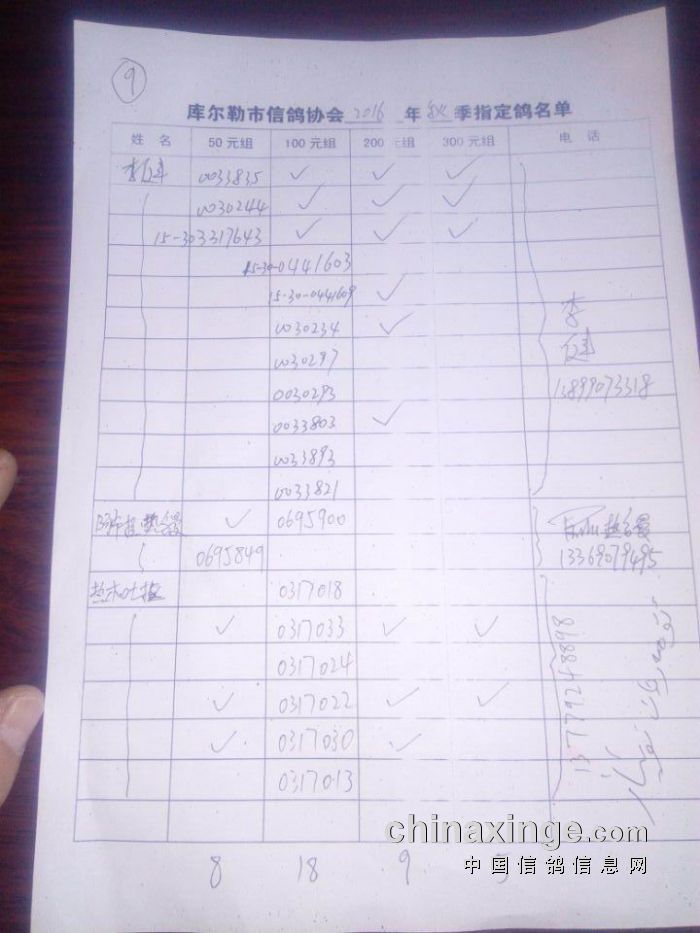 9
库尔勒市信鸽协会 2016 年 秋 季指定鸽名单
姓 名 50 元组 100 元组 200 元组 300 元组 电 话
李建 0033835 ✓ ✓ ✓
0030244 ✓ ✓ ✓
15-303317643 ✓ ✓ ✓
15-30-0441603
15-30-0441609 ✓
0030234 ✓
0030297
0030293
0033803 ✓
0033893
0033821
李建
13899073318
✓ 0695900
0695849
13369079495
0317018
✓ 0317033 ✓ ✓
0317024
✓ 0317022 ✓ ✓
✓ 0317030 ✓
0317013
13779248898
8 18 9 5
chinaxinge.com
中国信鸽信息网